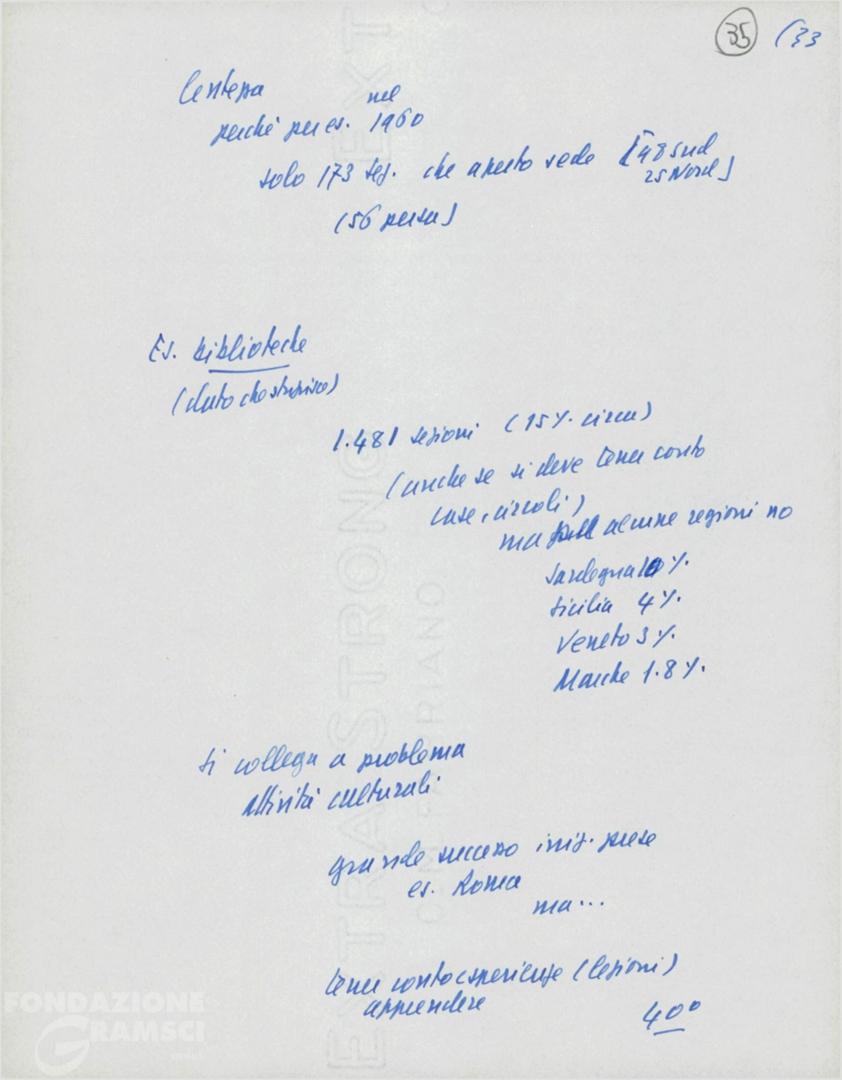 35 (33
Lentezza nel
perché per es. 1960
solo 173 sez. che aperto sede [148 sud
25 Nord]
(56 perse)
Es. biblioteche
(dato che
1.481 sezioni (15%. circa)
(anche se si deve tener conto
case, circoli)
ma alcune regioni no
Sardegna 10%.
Sicilia 4%.
Veneto 3%.
Marche 1.8%.
Si collega a problema
attività culturali
grande successo iniz. prese
es. Roma
ma...
tener conto esperienze (lezioni)
apprendere
40°
EXTRA STRONG EXT
FABRIANO
FONDAZIONE
GRAMSCI